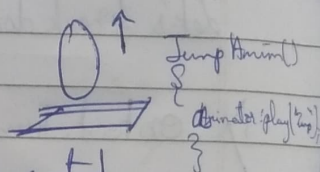 JumpAnim()
{
Animator.play("Jump");
}